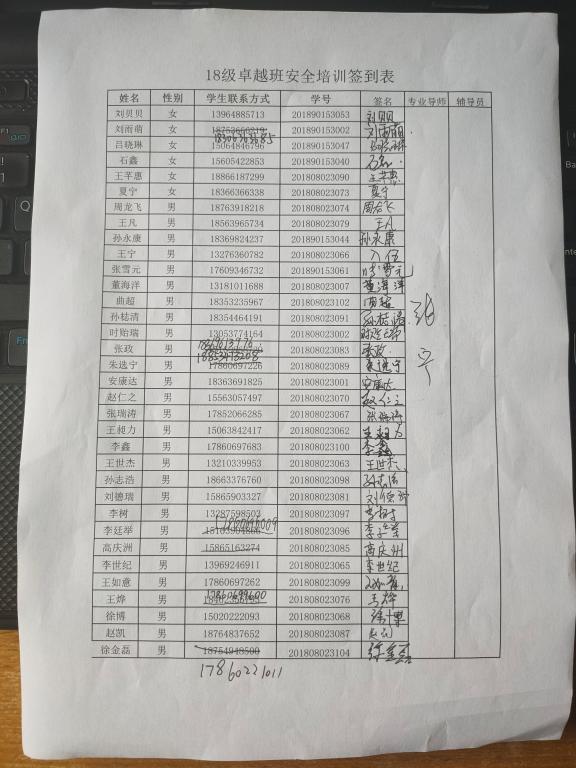 18级卓越班安全培训签到表
姓名 性别 学生联系方式 学号 签名 专业导师 辅导员
刘贝贝 女 13964885713 201890153053 刘贝贝
刘雨萌 女 201890153002 刘雨萌
18306363685
吕晓琳 女 15064846796 201890153047 吕晓琳
石鑫 女 15605422853 201890153040 石鑫
王芊惠 女 18866187299 201808023090 王芊惠
夏宁 女 18366366338 201808023073 夏宁
周龙飞 男 18763918218 201808023074 周龙飞
王凡 男 18563965734 201808023079 王凡
孙永康 男 18369824237 201890153044 孙永康
王宁 男 13276360782 201808023066 入伍
张雪元 男 17609346732 201890153061 张雪元
董海洋 男 13181011688 201808023007 董海洋
曲超 男 18353235967 201808023102 曲超
孙梽清 男 18354464191 201808023091 孙梽清
时贻瑞 男 13053774164 201808023002 时贻瑞
张政 男 201808023083 张政
朱选宁 男 17860697226 201808023089 朱选宁
安康达 男 18363691825 201808023001 安康达
赵仁之 男 15563057497 201808023070 赵仁之
张瑞涛 男 17852066285 201808023067 张瑞涛
王昶力 男 15063842417 201808023062 王昶力
李鑫 男 17860697683 201808023100 李鑫
王世杰 男 13210339953 201808023063 王世杰
孙志浩 男 18663376760 201808023098 孙志浩
刘德瑞 男 15865903327 201808023081 刘德瑞
李树 男 13287598503 201808023097 李树
17860696009
李廷举 男 15103904866 201808023096 李廷举
高庆洲 男 15865163274 201808023085 高庆洲
李世纪 男 13969246911 201808023065 李世纪
王如意 男 17860697262 201808023099
17860699600
王烨 男 201808023076 王烨
徐博 男 15020222093 201808023068 徐博
赵凯 男 18764837652 201808023087 赵凯
徐金磊 男 18754948500 201808023104 徐金磊
17860221011